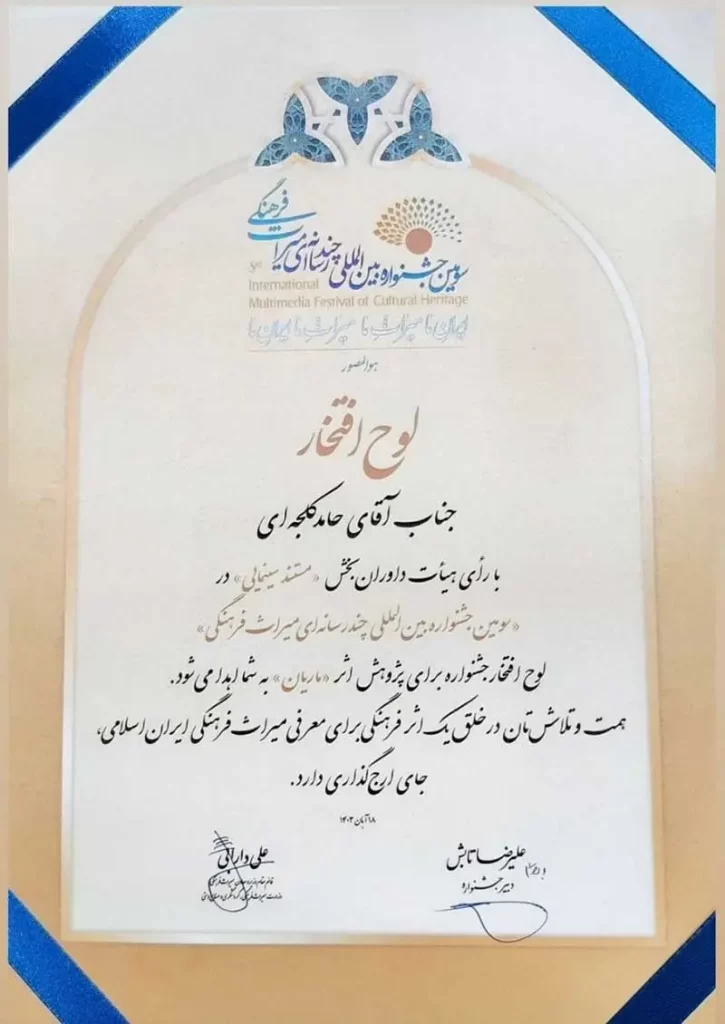 سومین جشنواره بین‌المللی چندرسانه‌ای میراث فرهنگی
3rd
International
Multimedia Festival of Cultural Heritage
ایران ما میراث ما میراث ما ایران ما
هوالمصور
لوح افتخار
جناب آقای حامد کلجه‌ای
با رأی هیأت داوران بخش «مستند سینمایی» در
«سومین جشنواره بین‌المللی چندرسانه‌ای میراث فرهنگی»
لوح افتخار جشنواره برای پژوهش اثر «ماریان» به شما اهدا می‌شود.
همت و تلاش‌تان در خلق یک اثر فرهنگی برای معرفی میراث فرهنگی ایران اسلامی،
جای ارج‌گذاری دارد.
۱۸ آبان ۱۴۰۲
علیرضا تابش
دبیر جشنواره
علی دارابی
قائم مقام وزیر و معاون میراث فرهنگی
وزارت میراث فرهنگی، گردشگری و صنایع دستی